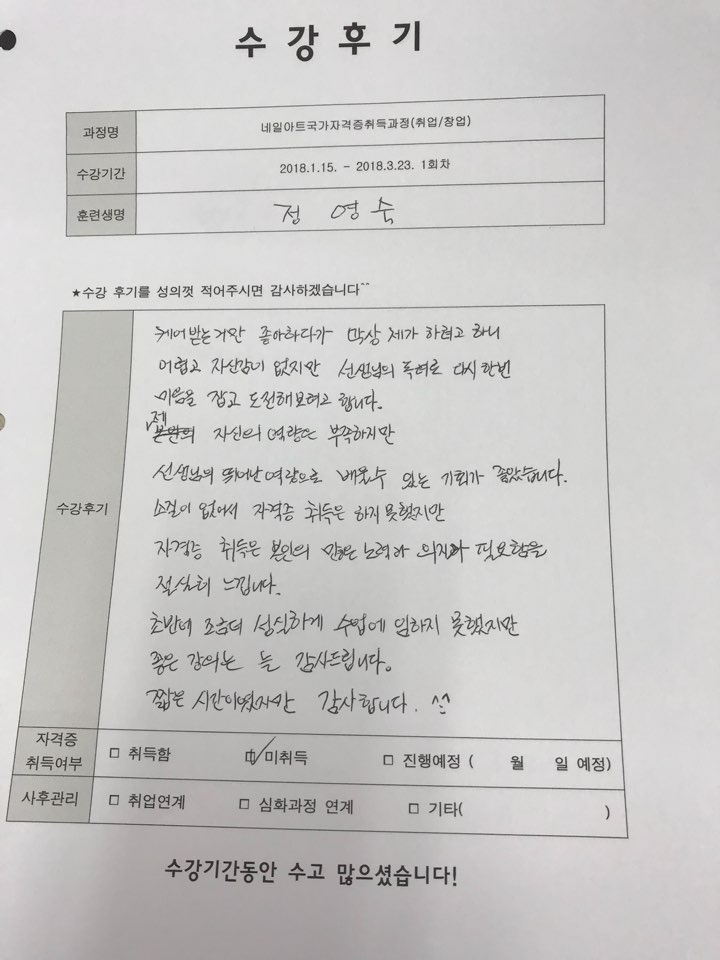 수 강 후 기
과정명 네일아트국가자격증취득과정(취업/창업)
수강기간 2018.1.15. - 2018.3.23. 1회차
훈련생명 정 영 숙
★수강 후기를 성의껏 적어주시면 감사하겠습니다^^
수강후기
케어받는거만 좋아하다가 막상 제가 하려고 하니
어렵고 자신감이 없지만 선생님의 독려로 다시한번
마음을 잡고 도전해보려고 합니다.
제 자신의 역량은 부족하지만
선생님의 뛰어난 역량으로 배울수 있는 기회가 좋았습니다.
소질이 없어서 자격증 취득은 하지 못했지만
자격증 취득은 본인의 많은 노력과 의지가 필요함을
절실히 느낍니다.
초반에 조금더 성실하게 수업에 임하지 못했지만
좋은 강의는 늘 감사드립니다.
짧은 시간이였지만 감사합니다. ^^
자격증
취득여부 □ 취득함 ☑ 미취득 □ 진행예정 ( 월 일 예정)
사후관리 □ 취업연계 □ 심화과정 연계 □ 기타( )
수강기간동안 수고 많으셨습니다!